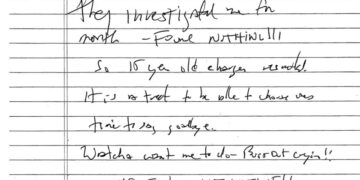 they investigated me for
month - FOUND NOTHING!!!
So 15 year old charges resulted.
It is a treat to be able to choose ones
time to say goodbye.
Watcha want me to do - Burst out cryin!!